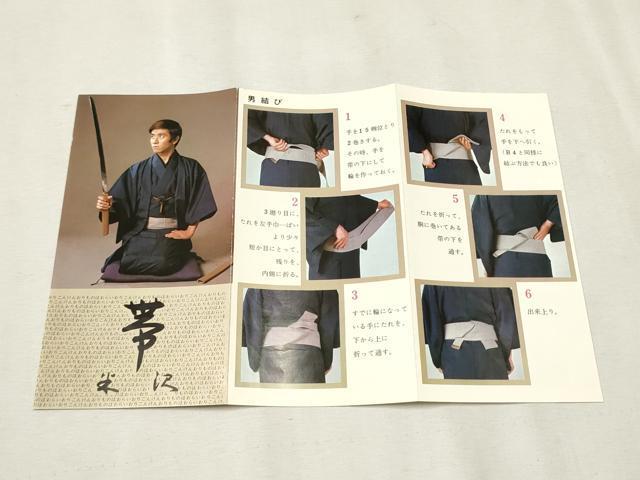 帯
米沢
男結び
1
手を15糎位とり
2巻きする。
その時、手を
帯の下にして
輪を作っておく。
2
3廻り目に、
たれを左手巾一ぱい
より少々
短か目にとって、
残りを、
内側に折る。
3
すでに輪になって
いる手にたれを、
下から上に
折って通す。
4
たれをもって
手を下へ引く。
(B4と同様に
結ぶ方法でも良い)
5
たれを折って、
胴に巻いてある
帯の下を
通す。
6
出来上り。